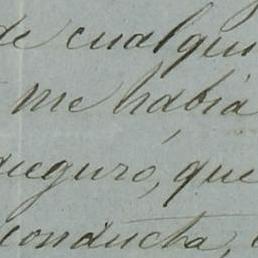 de cualqui
me habia
aseguró, que
conducta,